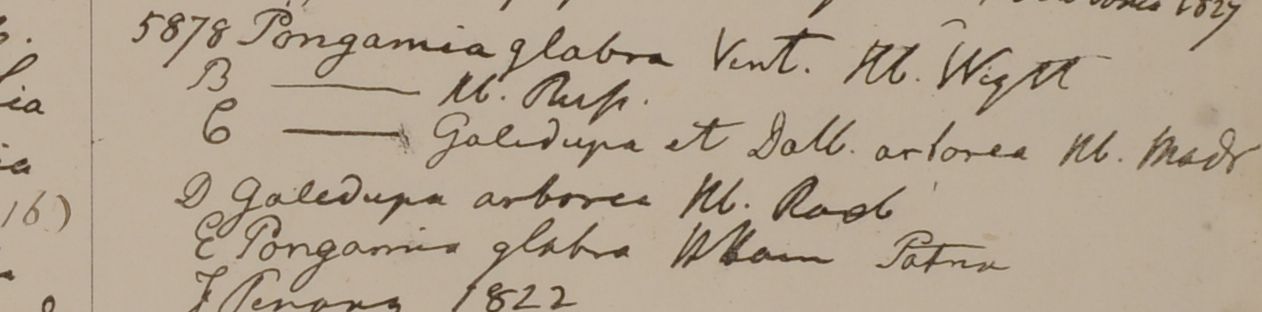 1827
5878 Pongamia glabra Vent. Hb. Wight
B —— Hb. Russ.
C —— Galedupa et Dalb. arborea Hb. Madr
D Galedupa arborea Hb. Roxb
E Pongamia glabra HHam Patna
F Penang 1822
16)